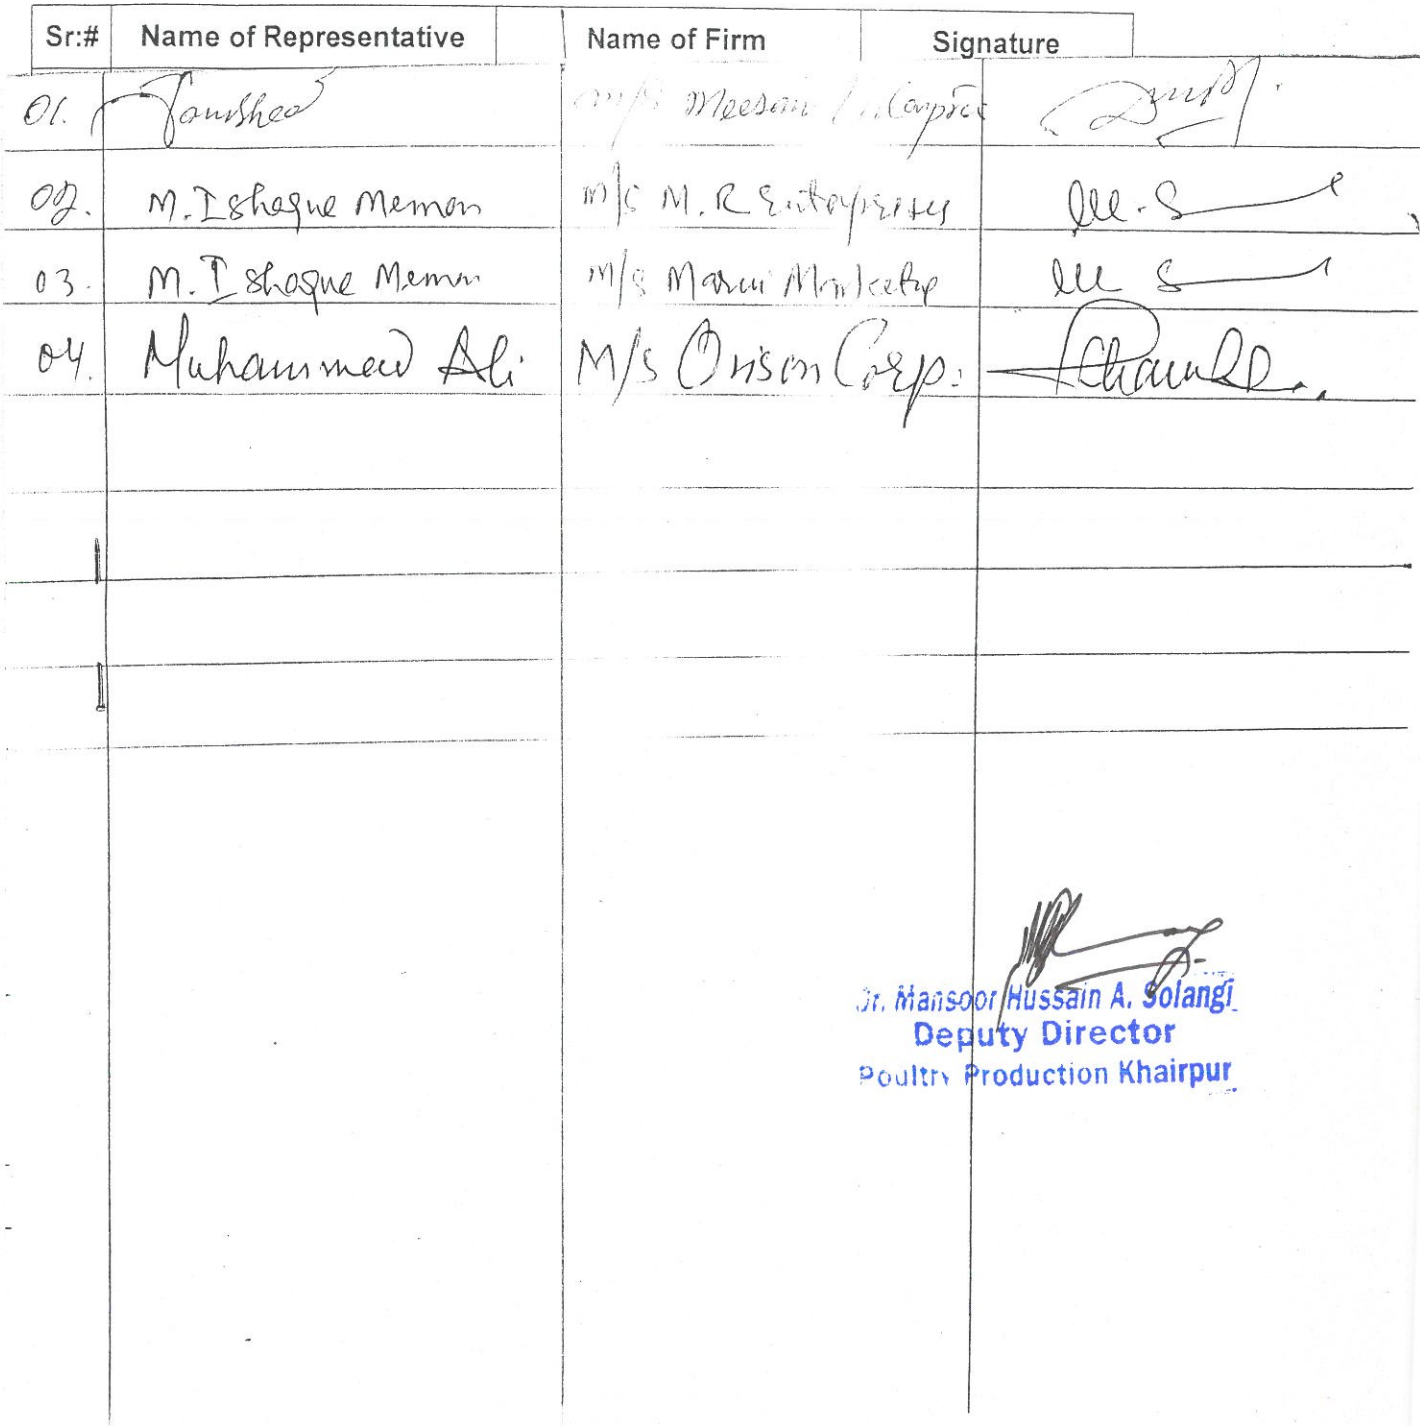 Sr:# Name of Representative Name of Firm Signature
01. Jamshed M/S Meesam
02. M. Ishaque Memon M/S M. R Enterprises
03. M. Ishaque Memon M/S Marui Marketing
04. Muhammad Ali M/S Orison Corp:
Dr. Mansoor Hussain A. Solangi
Deputy Director
Poultry Production Khairpur